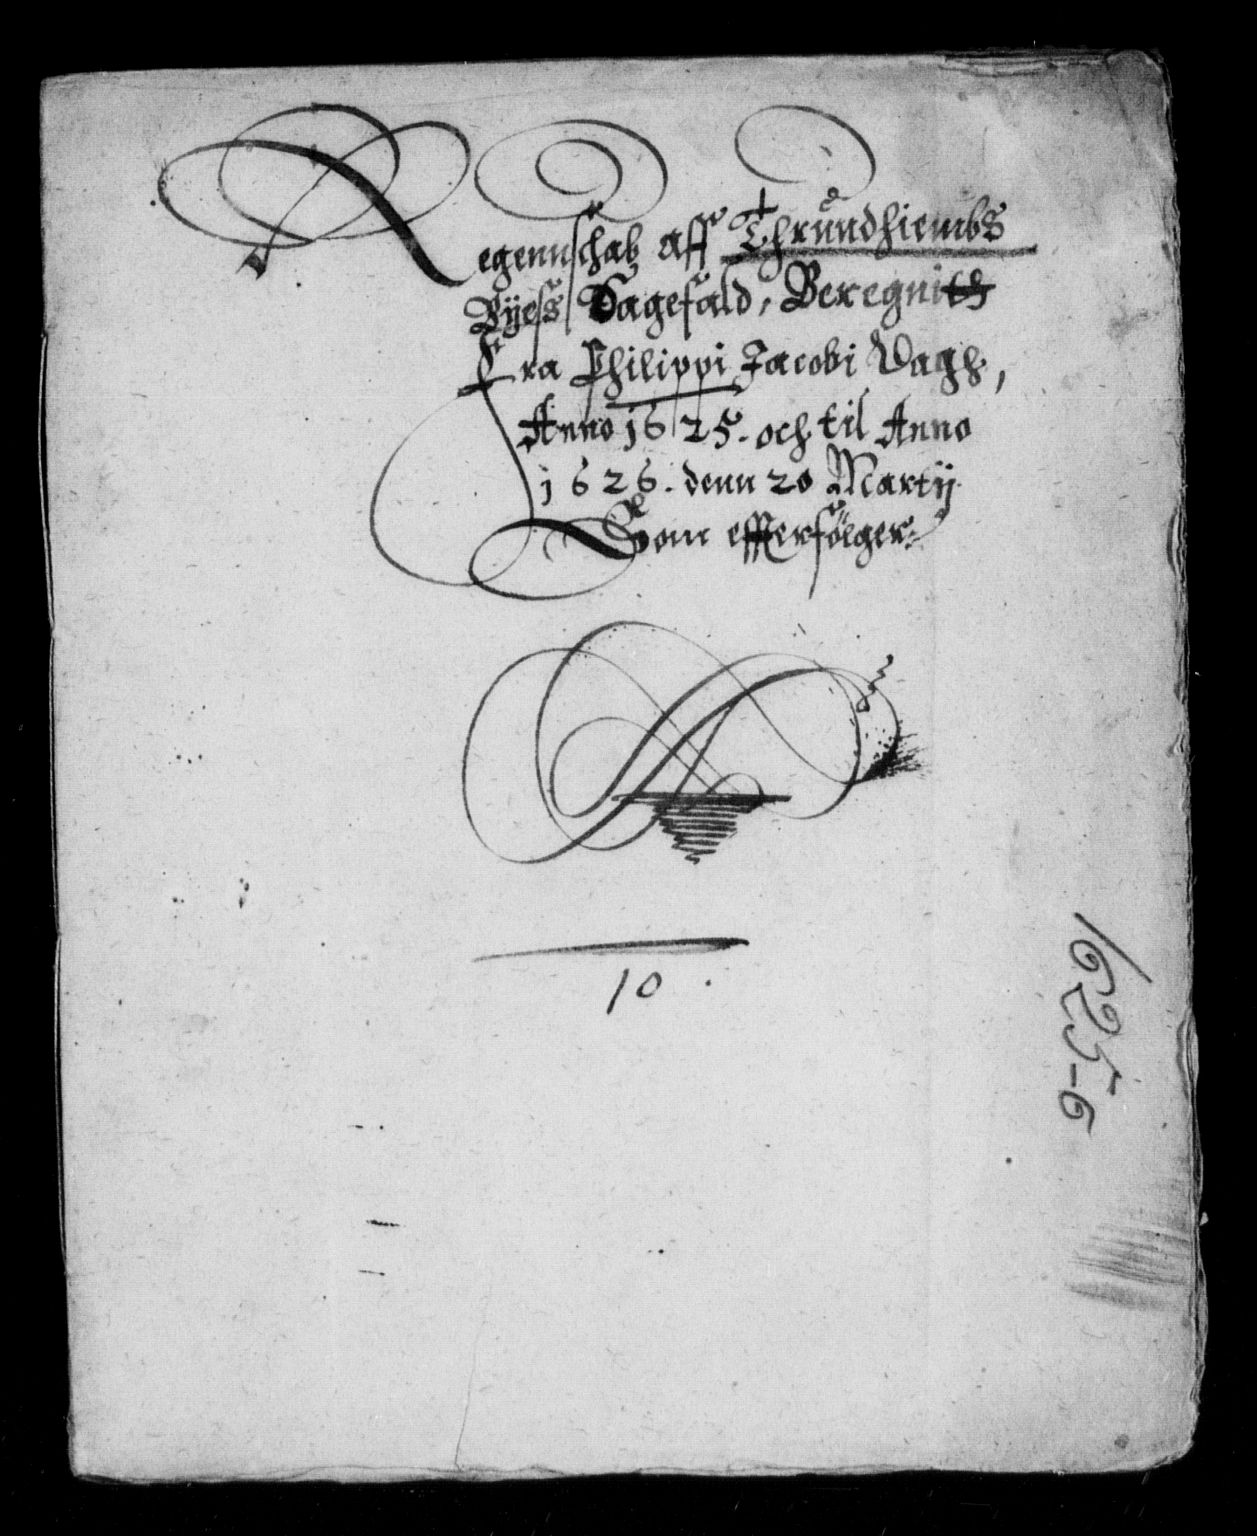 Regennschab aff Thrundhiembs
Byess Sagefald, Beregnith
Fra Philippi Jacobi Dagh,
Anno 1625. och til Anno
1626. denn 20 Martij
Som effterfölger
10.
1625-6